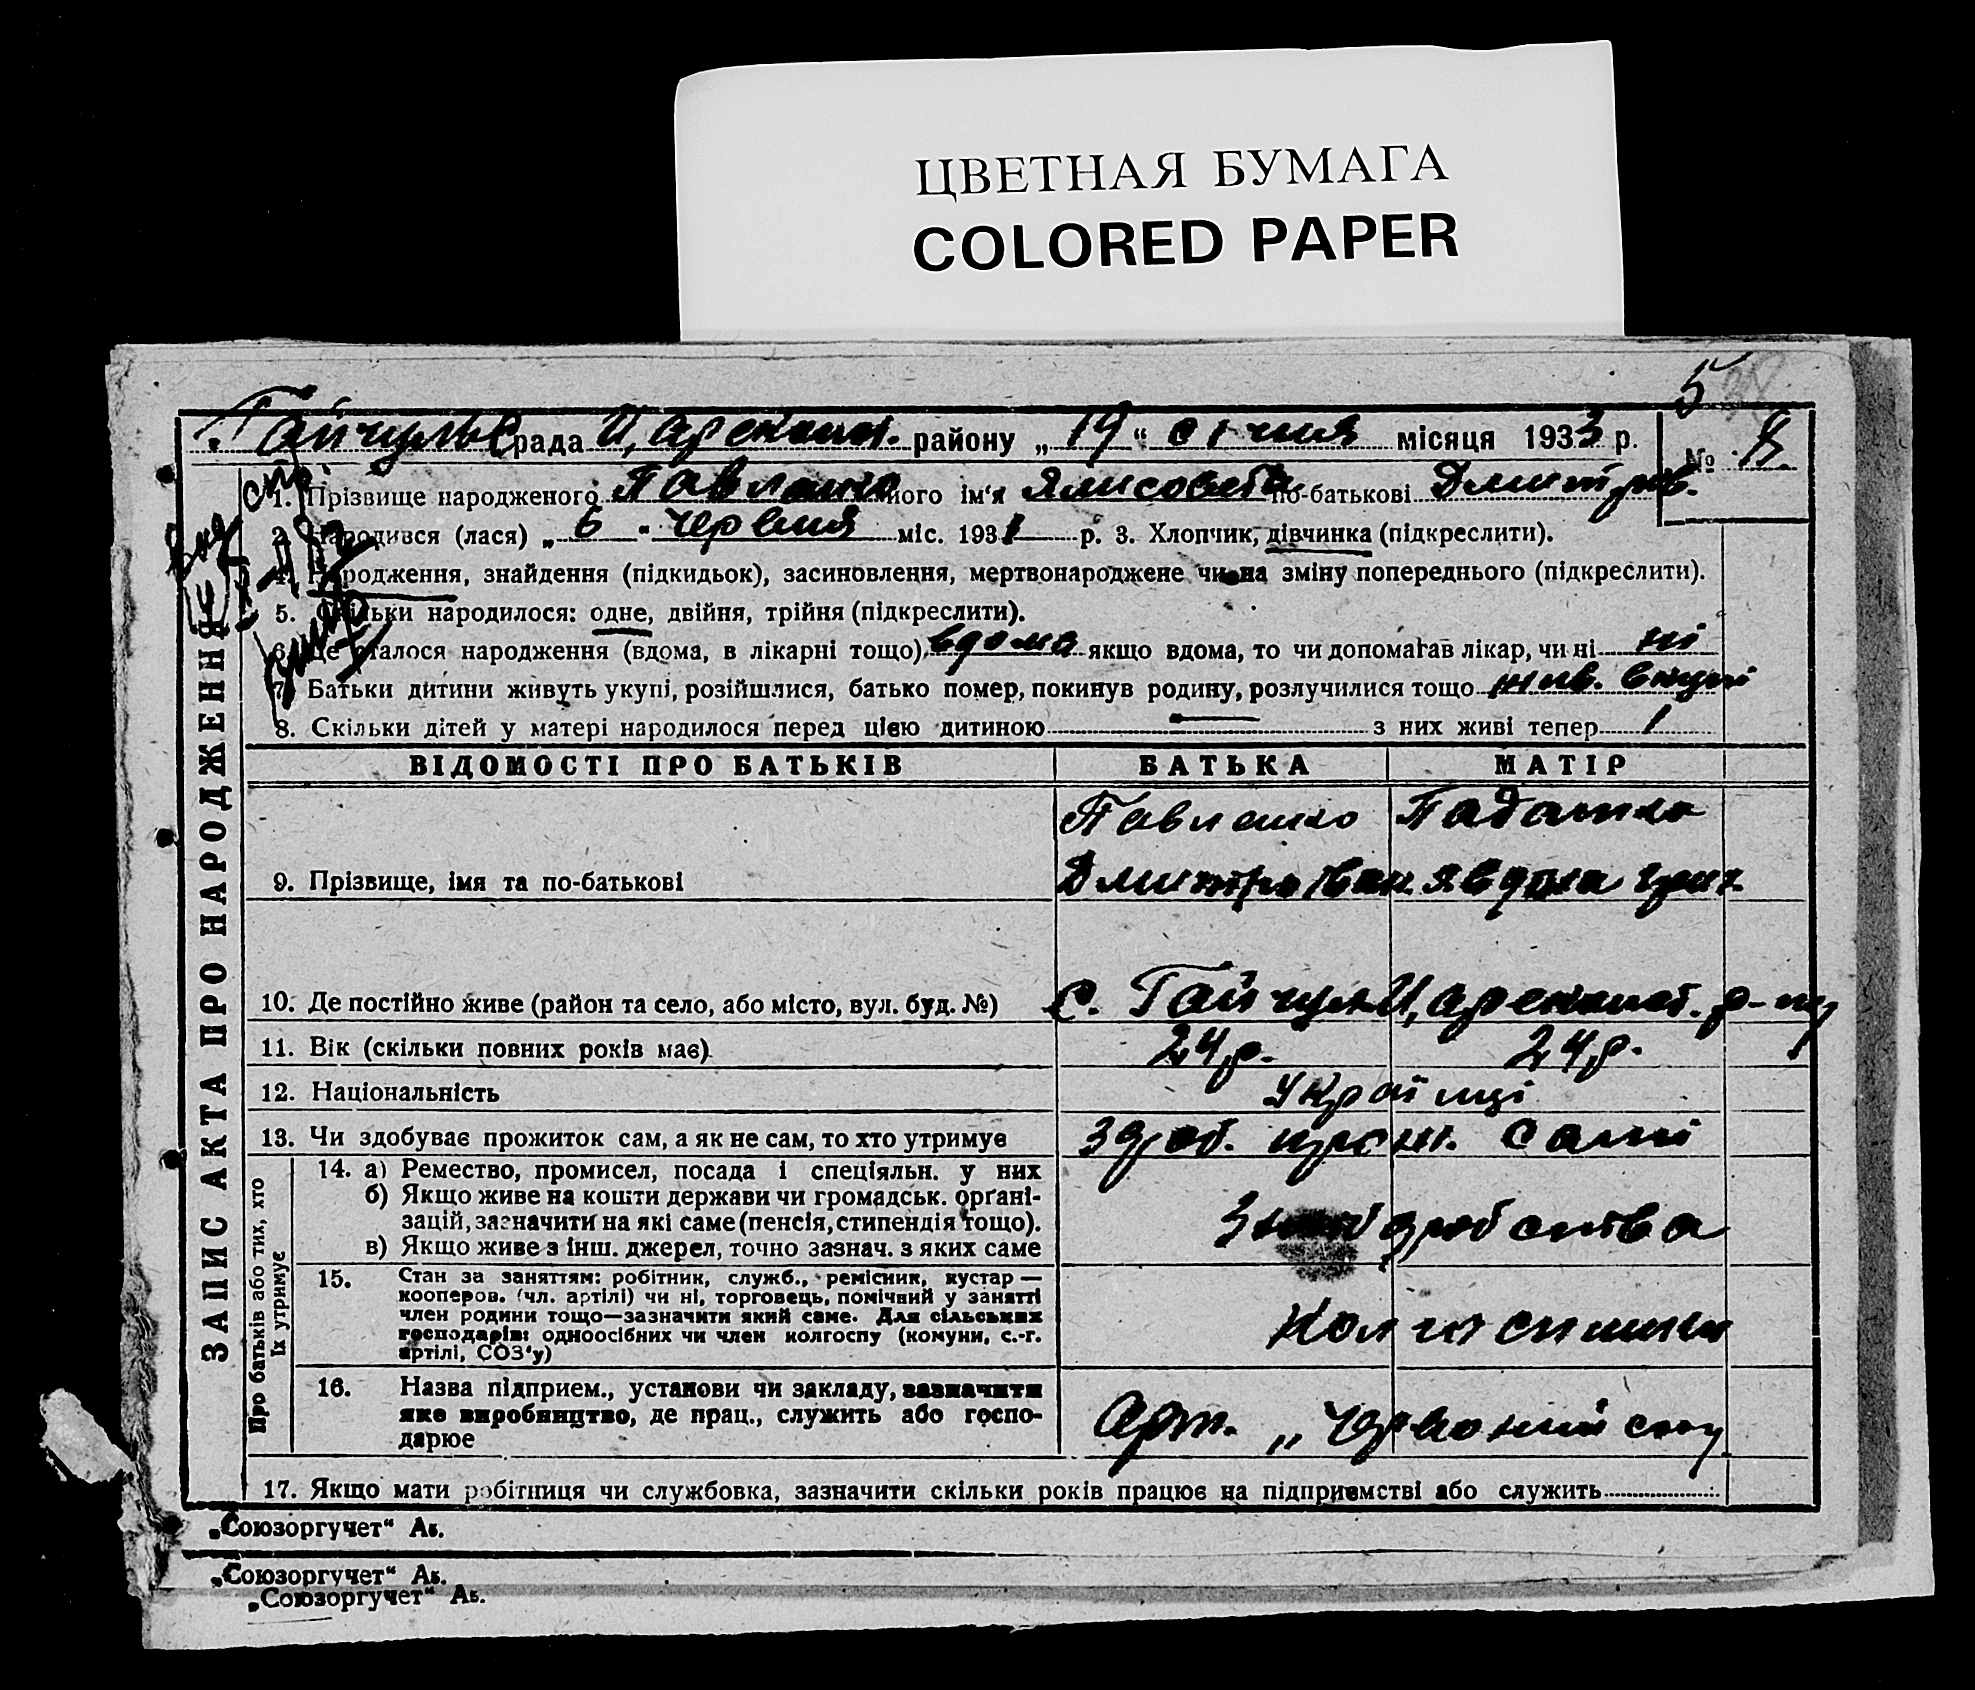 ЦВЕТНАЯ БУМАГА
COLORED PAPER
5
Гайчульс рада Царекост. району „19“ січня місяця 1933 р.
№ 8.
1. Прізвище народженого Павленко його ім‘я Ялисовета по-батькові Дмитров.
2. Народився (лася) „6“ червня міс. 1931 р. 3. Хлопчик, дівчинка (підкреслити).
4. Народження, знайдення (підкидьок), засиновлення, мертвонароджене чи на зміну попереднього (підкреслити).
5. Скільки народилося: одне, двійня, трійня (підкреслити).
6. Де сталося народження (вдома, в лікарні тощо) вдома якщо вдома, то чи допомагав лікар, чи ні ні
7. Батьки дитини живуть укупі, розійшлися, батько помер, покинув родину, розлучилися тощо жив. вкупі
8. Скільки дітей у матері народилося перед цією дитиною — з них живі тепер 1
ЗАПИС АКТА ПРО НАРОДЖЕННЯ
ВІДОМОСТІ ПРО БАТЬКІВ БАТЬКА МАТІР
Павленко
9. Прізвище, імя та по-батькові Дмитро Іван. Явдоха Григ.
10. Де постійно живе (район та село, або місто, вул. буд. №) с. Гайчул Царекост. р-ну
11. Вік (скільки повних років має) 24 р. 24 р.
12. Національність Українці
13. Чи здобуває прожиток сам, а як не сам, то хто утримує здоб. прож. самі
Про батьків або тих, хто їх утримує
14. а) Ремество, промисел, посада і спеціяльн. у них
б) Якщо живе на кошти держави чи громадськ. орґані-
зацій, зазначити на які саме (пенсія, стипендія тощо).
в) Якщо живе з інш. джерел, точно зазнач. з яких саме
15. Стан за заняттям: робітник, служб., ремісник, кустар —
кооперов. (чл. артілі) чи ні, торговець, помічний у занятті
член родини тощо—зазначити який саме. Для сільських
господарів: одноосібних чи член колгоспу (комуни, с.-г.
артілі, СОЗ‘у)
Колгоспники
16. Назва підприєм., установи чи закладу, зазначити
яке виробництво, де прац., служить або госпо-
дарює
Арт. „Червоний
17. Якщо мати робітниця чи службовка, зазначити скільки років працює на підприємстві або служить
„Союзоргучет“ Ає.
„Союзоргучет“ Ає.
„Союзоргучет“ Ає.